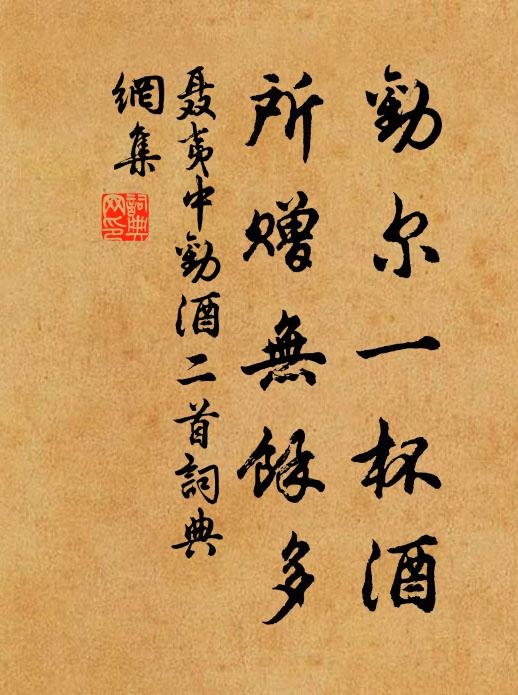 勸尔一杯酒
所贈無餘多
聂夷中勸酒二首詞典
網集
詞典
网印